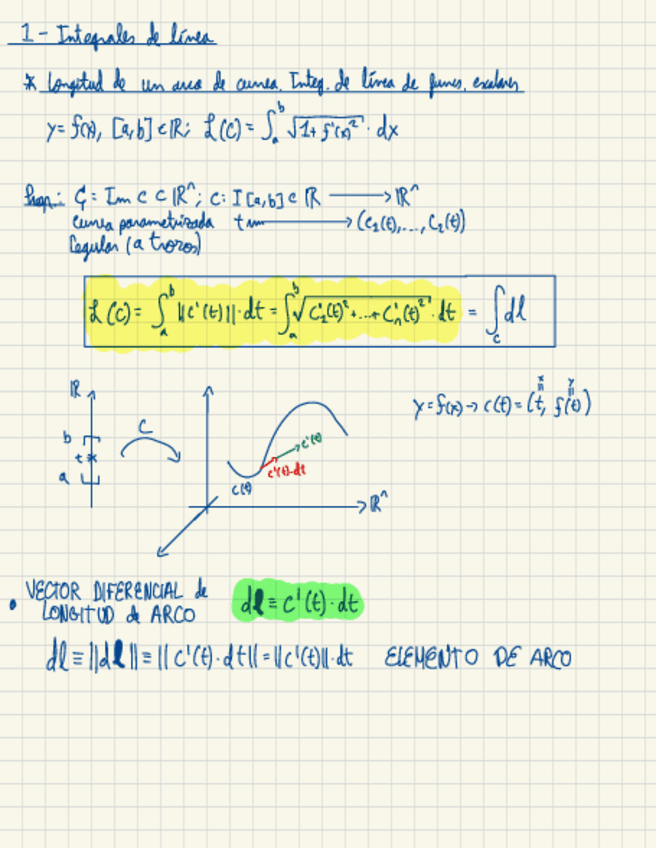 1 - Integrales de línea
* Longitud de un arco de curva. Integ. de línea de funcs. escalares
y = f(x), [a,b] ⊂ ℝ; ℒ(C) = ∫ₐᵇ √(1 + f'(x)²) · dx
Prop.: C = Im c ⊂ ℝⁿ; c: I[a,b] ⊂ ℝ ⟶ ℝⁿ
curva parametrizada t ⟶ (c₁(t), ..., c₂(t))
regular (a trozos)
ℒ(C) = ∫ₐᵇ ||c'(t)|| · dt = ∫ₐᵇ √(c'₁(t)² + ... + c'ₙ(t)²) · dt = ∫_c dl
y = f(x) → c(t) = (t, f(t))
x y
ℝ
b
t
a
C
c(t)
c'(t)
c'(t)·dt
ℝⁿ
• VECTOR DIFERENCIAL de
LONGITUD de ARCO
d𝐥 ≡ c'(t) · dt
dl ≡ ||d𝐥|| ≡ ||c'(t) · dt|| = ||c'(t)|| · dt ELEMENTO DE ARCO